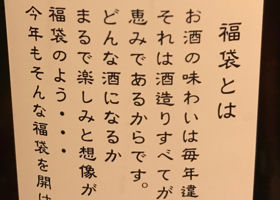 福袋とは
お酒の味わいは毎年違
それは酒造りすべてが
恵みであるからです。
どんな酒になるか
まるで楽しみと想像が
福袋のよう・・・
今年もそんな福袋を開け